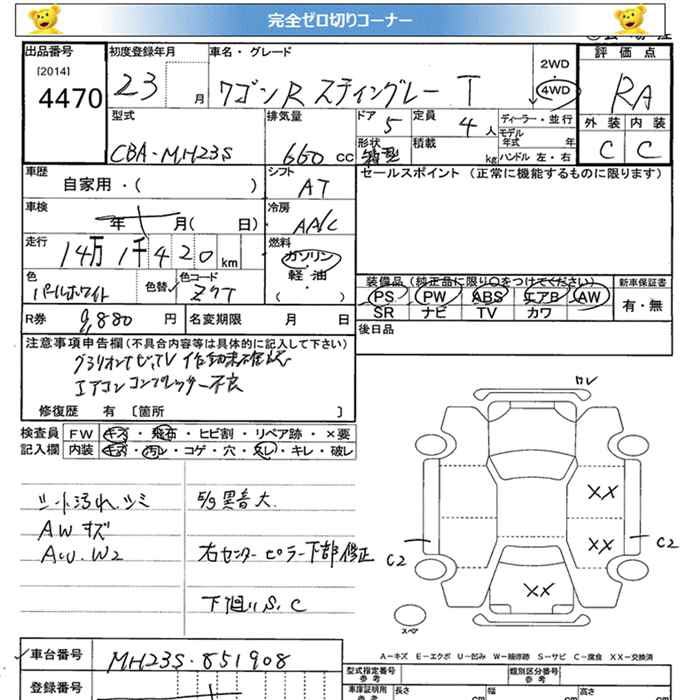 完全ゼロ切りコーナー
出品番号 初度登録年月 車名・グレード 評価点
[2014] 4470 23 月 ワゴンR スティングレー T 2WD 4WD RA
型式 排気量 ドア 5 定員 4人 ディーラー・並行 外装 内装
CBA-MH23S 660 cc 形状 箱型 積載 kg モデル年式 年 ハンドル 左・右 C C
車歴 シフト セールスポイント (正常に機能するものに限ります)
自家用・( ) AT
車検 冷房
年 月( 日) AA/C
走行 燃料
14万1千420km ガソリン
軽・油
色 色替 色コード ( )
パールホワイト Z7T
装備品 (純正品に限り○をつけてください) 新車保証書
PS PW ABS エアB AW 有・無
SR ナビ TV カワ
R券 9,880 円 名変期限 月 日 後日品
注意事項申告欄(不具合内容等は具体的に記入して下さい)
エアコンコンプレッサー不良
修復歴 有 [箇所 ]
検査員 FW キズ・飛石・ヒビ割・リペア跡・×要
記入欄 内装 キズ・汚レ・コゲ・穴・スレ・キレ・破レ
シート汚れ、シミ E/g異音大
AWキズ
AW.W2 右センターピラー下部修正
下廻りS、C
ワレ
XX
XX
C2 C2
XX
スペア
A-キズ E-エクボ U-凹み W-補修跡 S-サビ C-腐食 XX-交換済
車台番号 MH23S-851908
型式指定番号 参考 類別区分番号 参考
登録番号 車庫証明用 参考 長さ cm 幅 cm 高さ cm